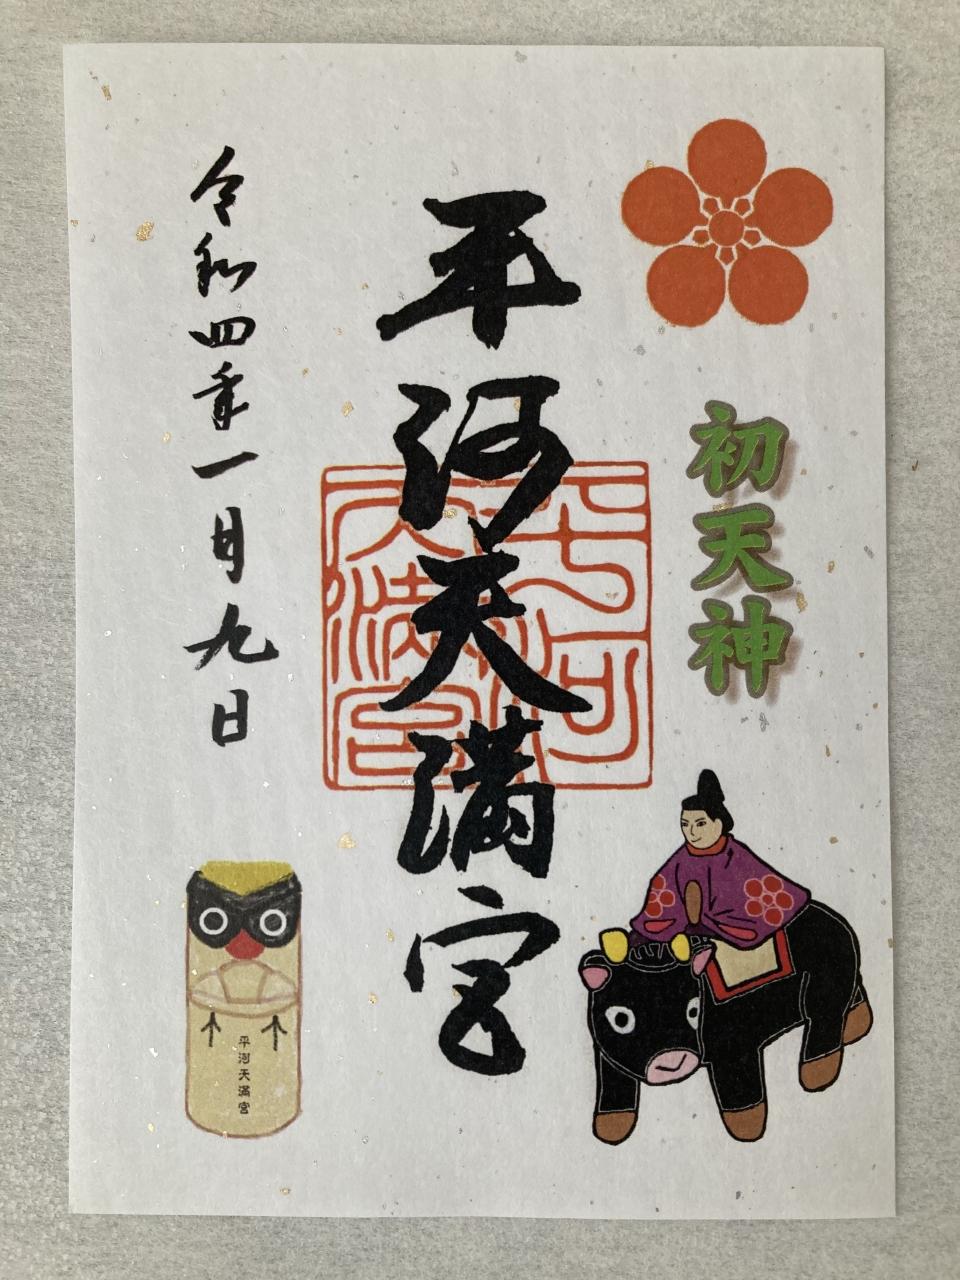 初天神
平河天満宮
平河天満宮
令和四年一月九日
平河天満宮